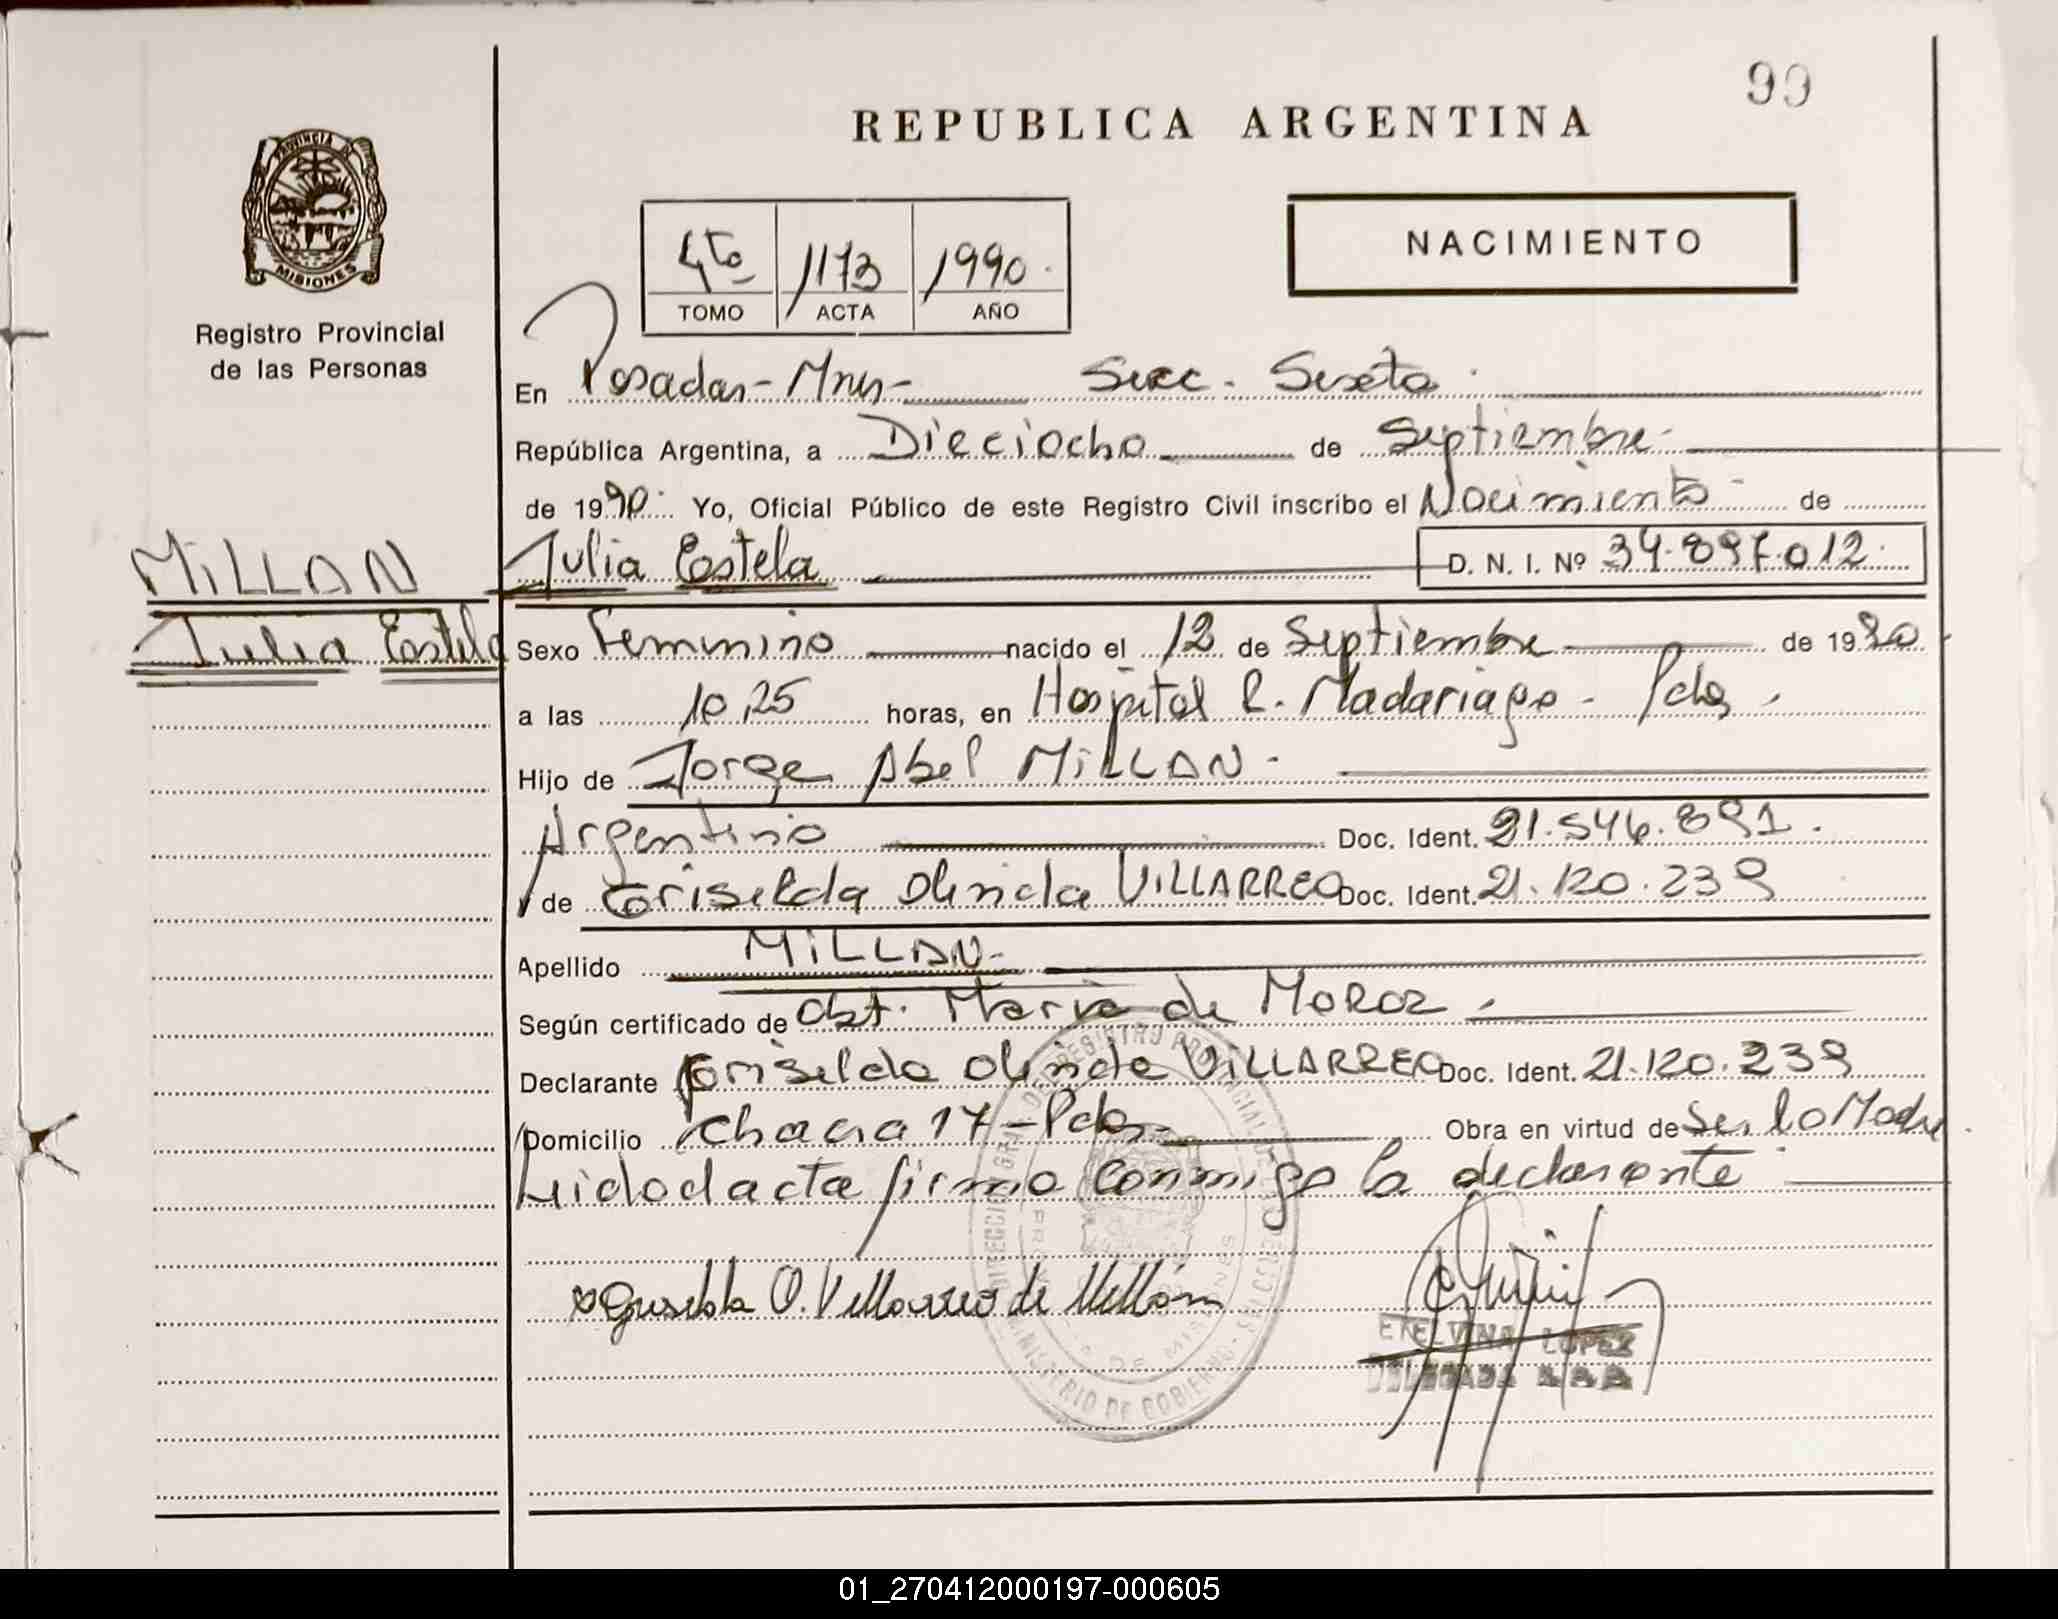 99
REPUBLICA ARGENTINA
PROVINCIA DE
MISIONES
Registro Provincial
de las Personas
4to 1173 1990.
TOMO ACTA AÑO
NACIMIENTO
En Posadas - Mnes - Secc. Sexta.
República Argentina, a Dieciocho de Septiembre.
de 1990. Yo, Oficial Público de este Registro Civil inscribo el Nacimiento - de
MILLAN
Julia Estela
Julia Estela D. N. I. Nº 34.897.012.
Sexo Femenino nacido el 12 de Septiembre de 1990
a las 10,25 horas, en Hospital R. Madariaga - Pdas.
Hijo de Jorge Abel MILLAN -
Argentino Doc. Ident. 21.546.891.
y de Griselda Olinda VILLARREO Doc. Ident. 21.120.239
Apellido MILLAN -
Según certificado de Obst. Maria de MOROZ -
Declarante Griselda Olinda VILLARREO Doc. Ident. 21.120.239
Domicilio Chacra 17 - Pdas - Obra en virtud de Ser la Madre.
Leido el acta firma conmigo la declarante
Griselda O. Villarreo de Millán
ETELVINA LOPEZ
DELEGADA
MINISTERIO DE GOBIERNO
01_270412000197-000605